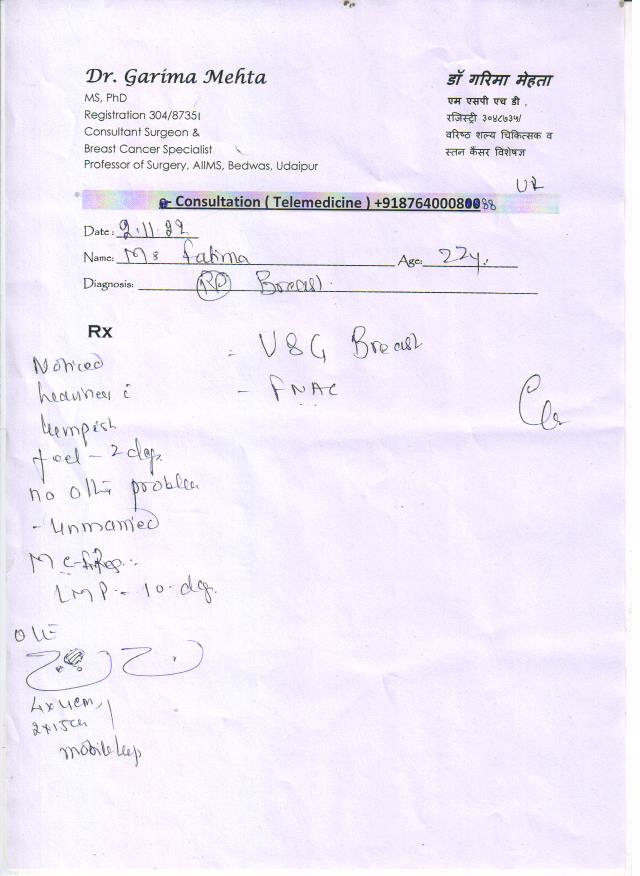 Dr. Garima Mehta
MS, PhD
Registration 304/87351
Consultant Surgeon &
Breast Cancer Specialist
Professor of Surgery, AIIMS, Bedwas, Udaipur
डॉ गरिमा मेहता
एम एसपी एच डी ,
रजिस्ट्री ३०४८७३५/
वरिष्ठ शल्य चिकित्सक व
स्तन कैंसर विशेषज्ञ
e- Consultation ( Telemedicine ) +91876400080088
Date: 2.11.22
Name: Ms Fatima Age: 22y.
Diagnosis: Breast
Rx
USG Breast
- FNAC
Noticed
heaviness c
lumpish
feel - 2 days
no other problem
- Unmarried
MC - Reg.
LMP - 10 days
O/E
4x4cm,
2x1.5cm
mobile lump